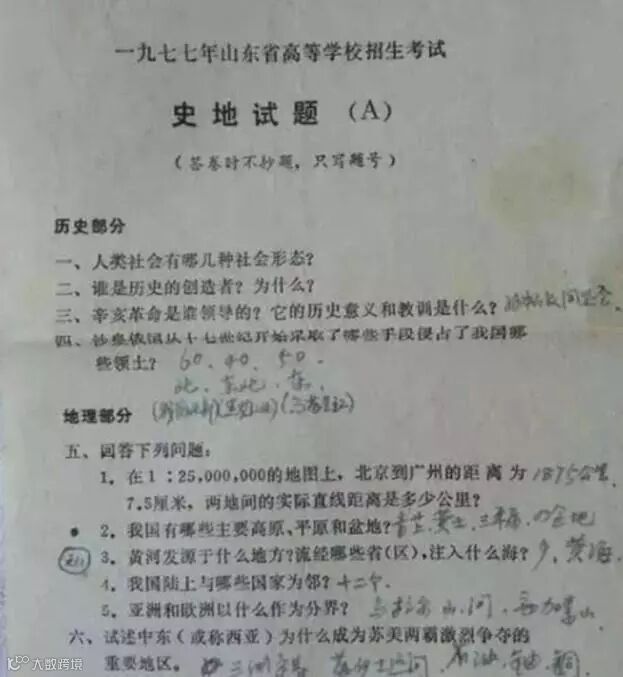 一九七七年山东省高等学校招生考试
史地试题（A）
（答卷时不抄题，只写题号）
历史部分
一、人类社会有哪几种社会形态？
二、谁是历史的创造者？为什么？
三、辛亥革命是谁领导的？它的历史意义和教训是什么？
四、沙皇俄国从十七世纪开始采取了哪些手段侵占了我国哪
些领土？ 60．40．50．
北．东北．东．
地理部分
五、回答下列问题：
1，在1：25,000,000的地图上，北京到广州的距离为 1875公里
7.5厘米，两地间的实际直线距离是多少公里？
2，我国有哪些主要高原、平原和盆地？
3，黄河发源于什么地方？流经哪些省(区)，注入什么海？
4，我国陆上与哪些国家为邻？十二个．
5，亚洲和欧洲以什么作为分界？
六、试述中东（或称西亚）为什么成为苏美两霸激烈争夺的
重要地区。
大数跨境